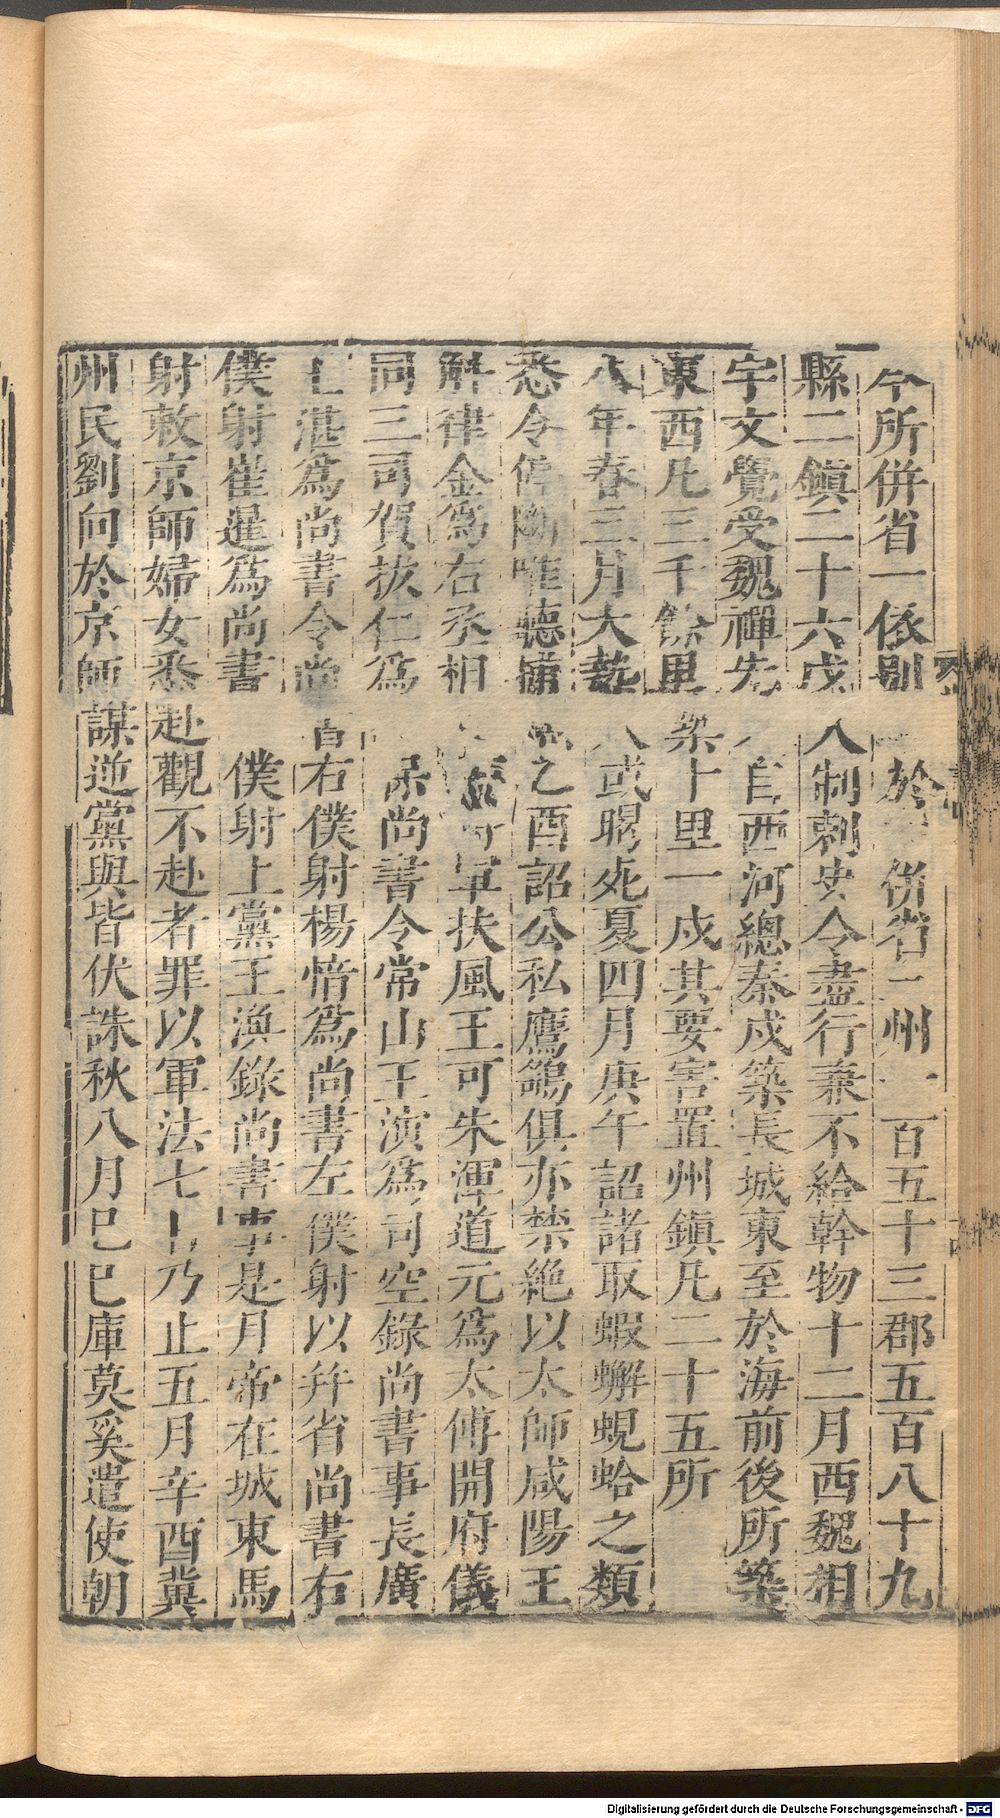 今所併省一依別於併省三州一百五十三郡五百八十九
縣二鎮二十六戍人制刺史令盡行兼不給幹物十二月西魏相
宇文覺受魏禪先自西河總秦戍築長城東至於海前後所築
東西凡三千餘里率十里一戍其要害置州鎮凡二十五所
八年春三月大熱人或暍死夏四月庚午詔諸取蝦蠏蜆蛤之類
悉令停斷唯聽捕之酉詔公私鷹鷂俱亦禁絕以太師咸陽王
斛律金為右丞相軍扶風王可朱渾道元為太傅開府儀
同三司賀拔仁為保尚書令常山王演為司空錄尚書事長廣
王湛為尚書令尚書右僕射楊愔為尚書左僕射以幷省尚書右
僕射崔暹為尚書僕射上黨王渙錄尚書事是月帝在城東馬
射敕京師婦女悉赴觀不赴者罪以軍法七日乃止五月辛酉冀
州民劉向於京師謀逆黨與皆伏誅秋八月己巳庫莫奚遣使朝
Digitalisierung gefördert durch die Deutsche Forschungsgemeinschaft - DFG